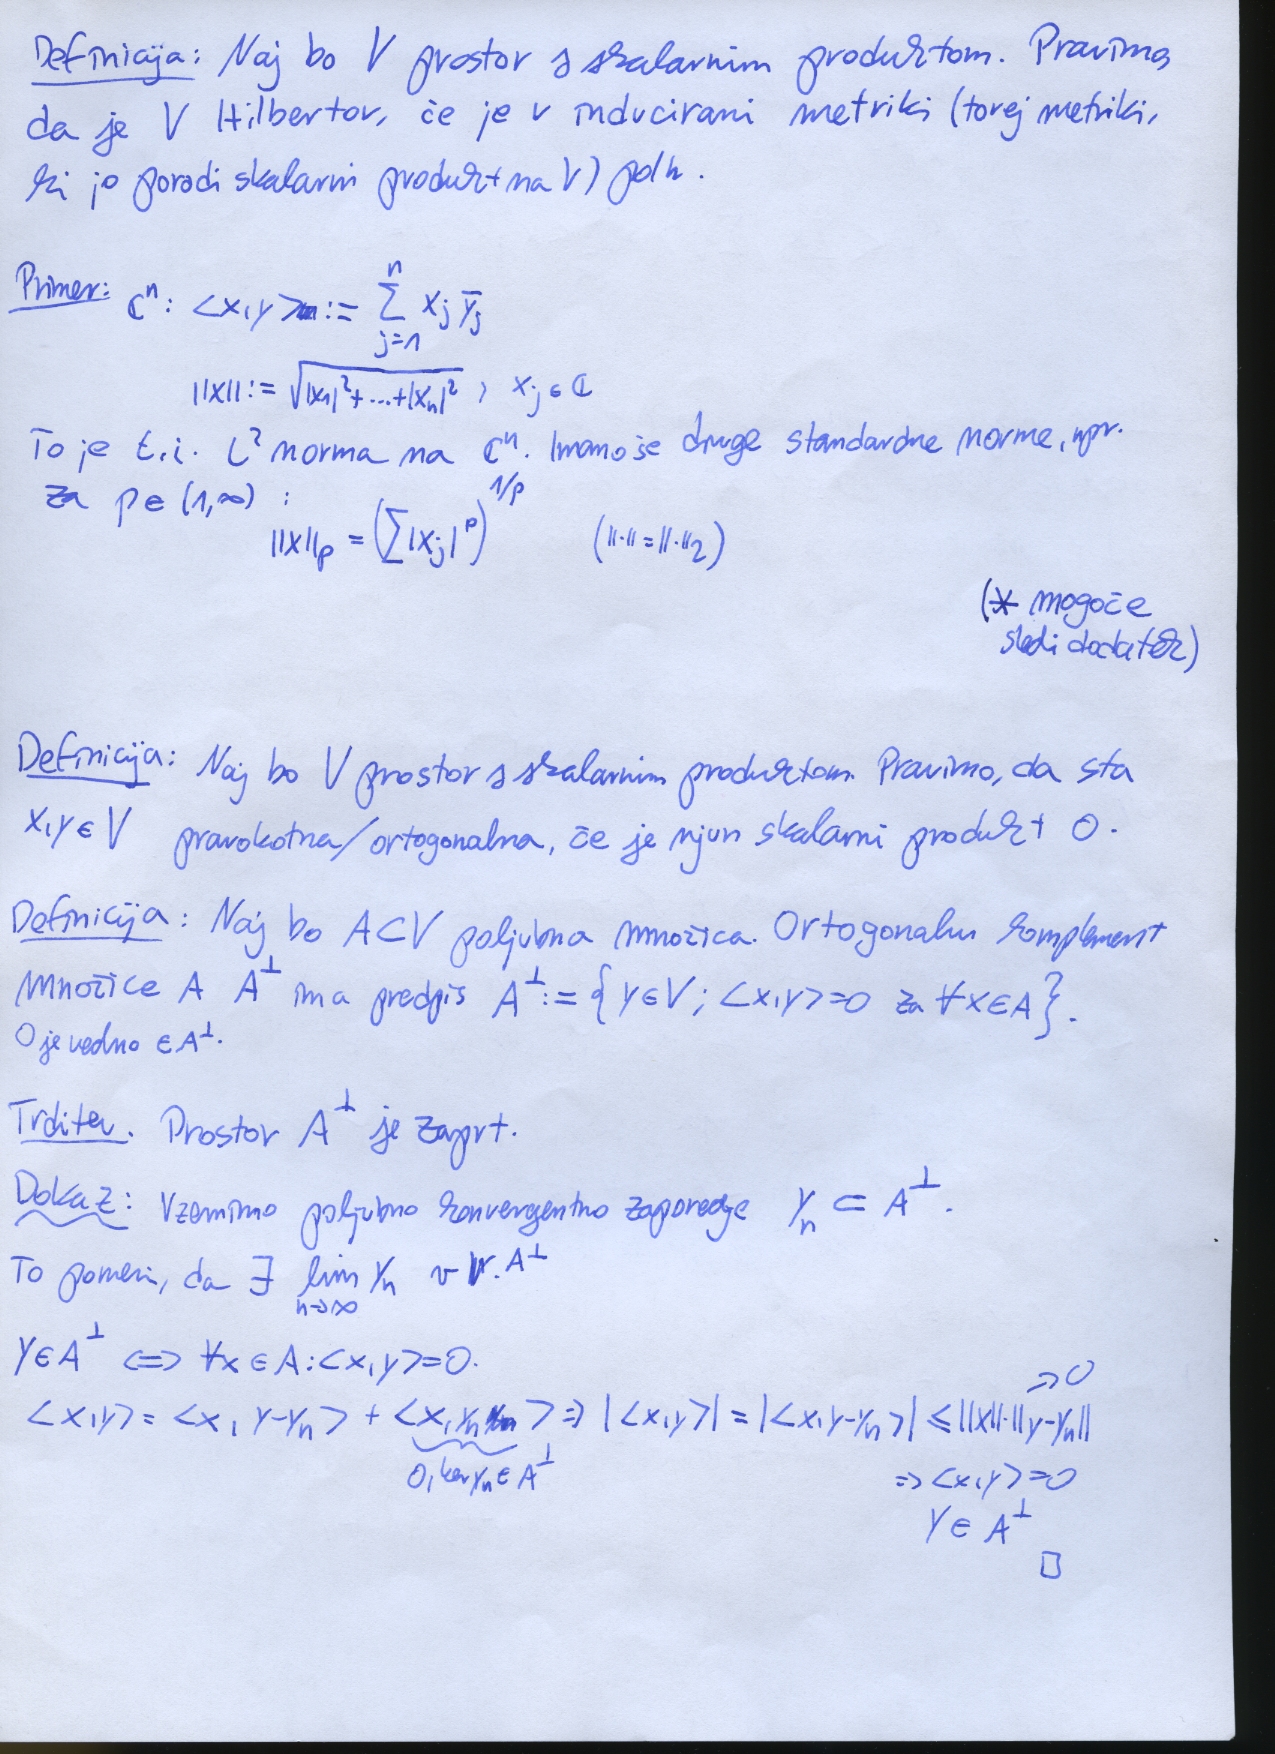 Definicija: Naj bo V prostor s skalarnim produktom. Pravimo,
da je V Hilbertov, če je v inducirani metriki (torej metriki,
ki jo porodi skalarni produkt na V) poln.
Primer: ℂⁿ: <x,y> := ∑_{j=1}^{n} x_j ȳ_j
||x|| := √(|x₁|² + ... + |x_n|²) , x_j ∈ ℂ
To je t.i. L² norma na ℂⁿ. Imamo še druge standardne norme, npr.
za p ∈ (1,∞) :
||x||_p = (∑|x_j|^p)^{1/p} (||·|| = ||·||₂)
(* mogoče
sledi dodatek)
Definicija: Naj bo V prostor s skalarnim produktom. Pravimo, da sta
x,y ∈ V pravokotna/ortogonalna, če je njun skalarni produkt 0.
Definicija: Naj bo A ⊂ V poljubna množica. Ortogonalni komplement
množice A A^⊥ ima predpis A^⊥ := {y ∈ V; <x,y>=0 za ∀x∈A}.
0 je vedno ∈ A^⊥.
Trditev. Prostor A^⊥ je zaprt.
Dokaz: Vzemimo poljubno konvergentno zaporedje y_n ⊂ A^⊥.
To pomeni, da ∃ lim_{n→∞} y_n v V. A^⊥
y ∈ A^⊥ ⟺ ∀x ∈ A: <x,y>=0.
<x,y> = <x, y-y_n> + <x, y_n> ⇒ |<x,y>| = |<x,y-y_n>| ≤ ||x||·||y-y_n|| → 0
0, ker y_n ∈ A^⊥
⇒ <x,y> = 0
y ∈ A^⊥
□